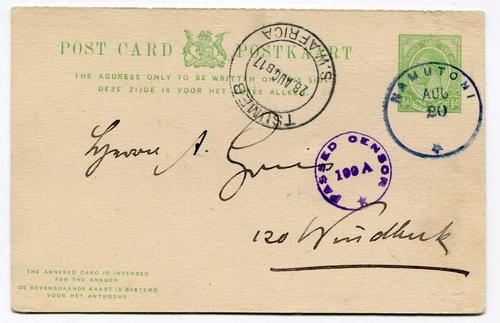 POST CARD POSTKAART
THE ADDRESS ONLY TO BE WRITTEN ON THIS SIDE
DEZE ZIJDE IS VOOR HET ADRES ALLEEN
TSUMEB S.W. AFRICA
28 AUG 17
NAMUTONI
AUG
20
A.
PASSED CENSOR
199 A
120 Windhuk
THE ANNEXED CARD IS INTENDED
FOR THE ANSWER
DE NEVENSGAANDE KAART IS BESTEMD
VOOR HET ANTWOORD